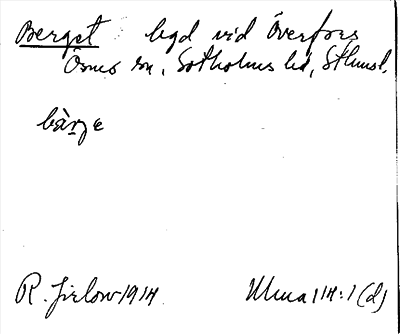 Berget lgd vid Överfors
Ösmo sn, Sotholms hd, Sthmsl.
bärge
R. Jirlow 1914. Ulma 114:1 (d)